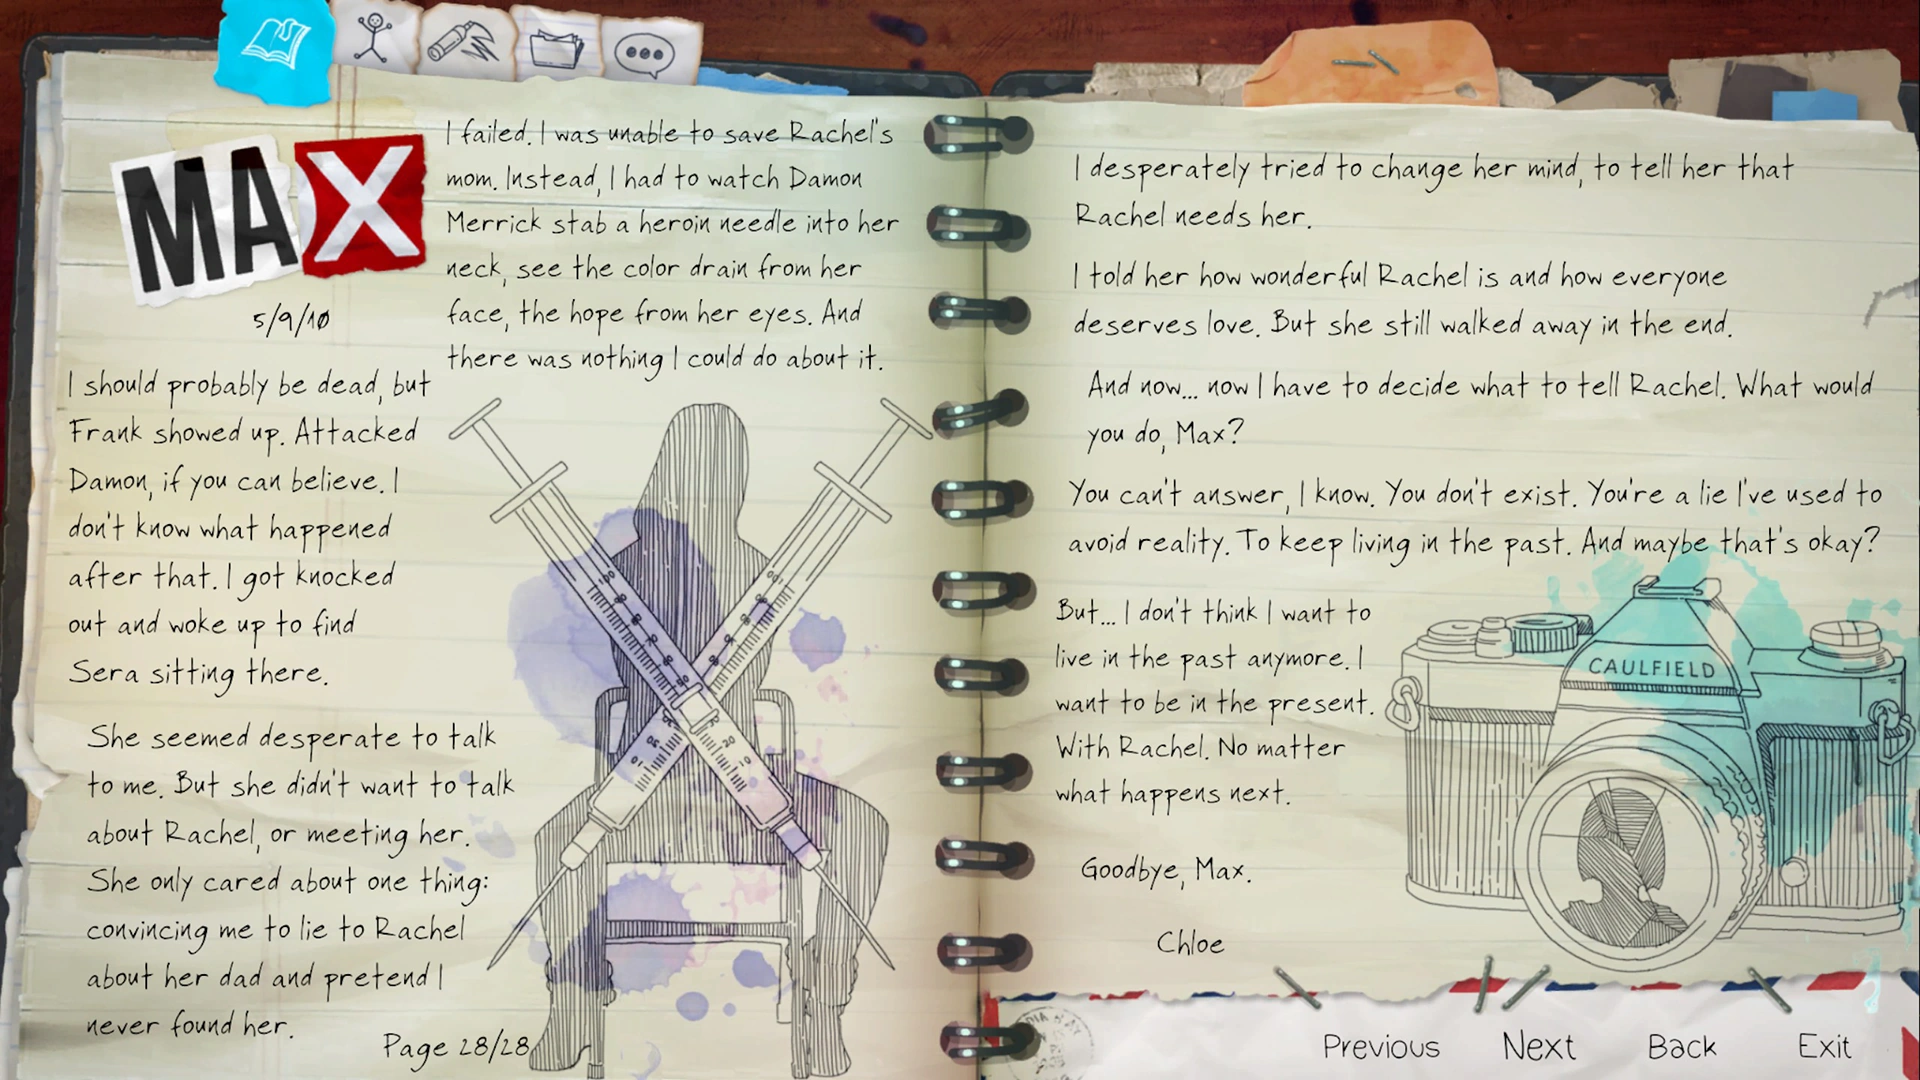 MAX
5/9/10
I failed. I was unable to save Rachel's
mom. Instead, I had to watch Damon
Merrick stab a heroin needle into her
neck, see the color drain from her
face, the hope from her eyes. And
there was nothing I could do about it.
I should probably be dead, but
Frank showed up. Attacked
Damon, if you can believe. I
don't know what happened
after that. I got knocked
out and woke up to find
Sera sitting there.
She seemed desperate to talk
to me. But she didn't want to talk
about Rachel, or meeting her.
She only cared about one thing:
convincing me to lie to Rachel
about her dad and pretend I
never found her.
Page 28/28
I desperately tried to change her mind, to tell her that
Rachel needs her.
I told her how wonderful Rachel is and how everyone
deserves love. But she still walked away in the end.
And now... now I have to decide what to tell Rachel. What would
you do, Max?
You can't answer, I know. You don't exist. You're a lie I've used to
avoid reality. To keep living in the past. And maybe that's okay?
But... I don't think I want to
live in the past anymore. I
want to be in the present.
With Rachel. No matter
what happens next.
Goodbye, Max.
Chloe
CAULFIELD
Previous
Next
Back
Exit